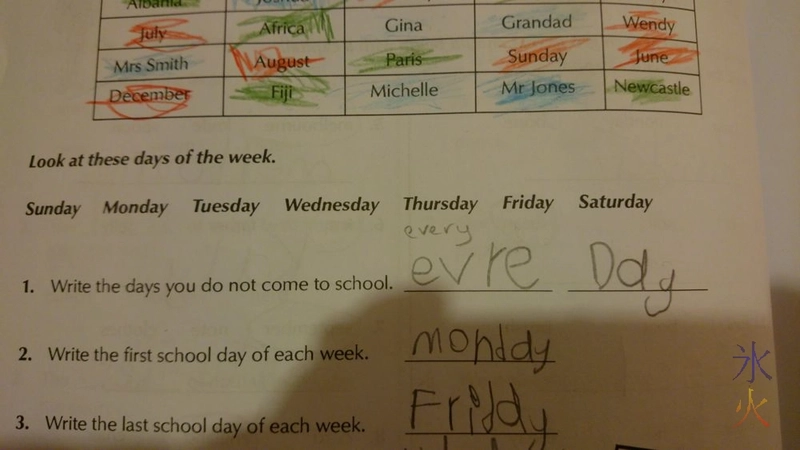 Albania
July Africa Gina Grandad Wendy
Mrs Smith August Paris Sunday June
December Fiji Michelle Mr Jones Newcastle
Look at these days of the week.
Sunday Monday Tuesday Wednesday Thursday Friday Saturday
every
1. Write the days you do not come to school. evre Day
2. Write the first school day of each week. monday
3. Write the last school day of each week. Friday
氷
火